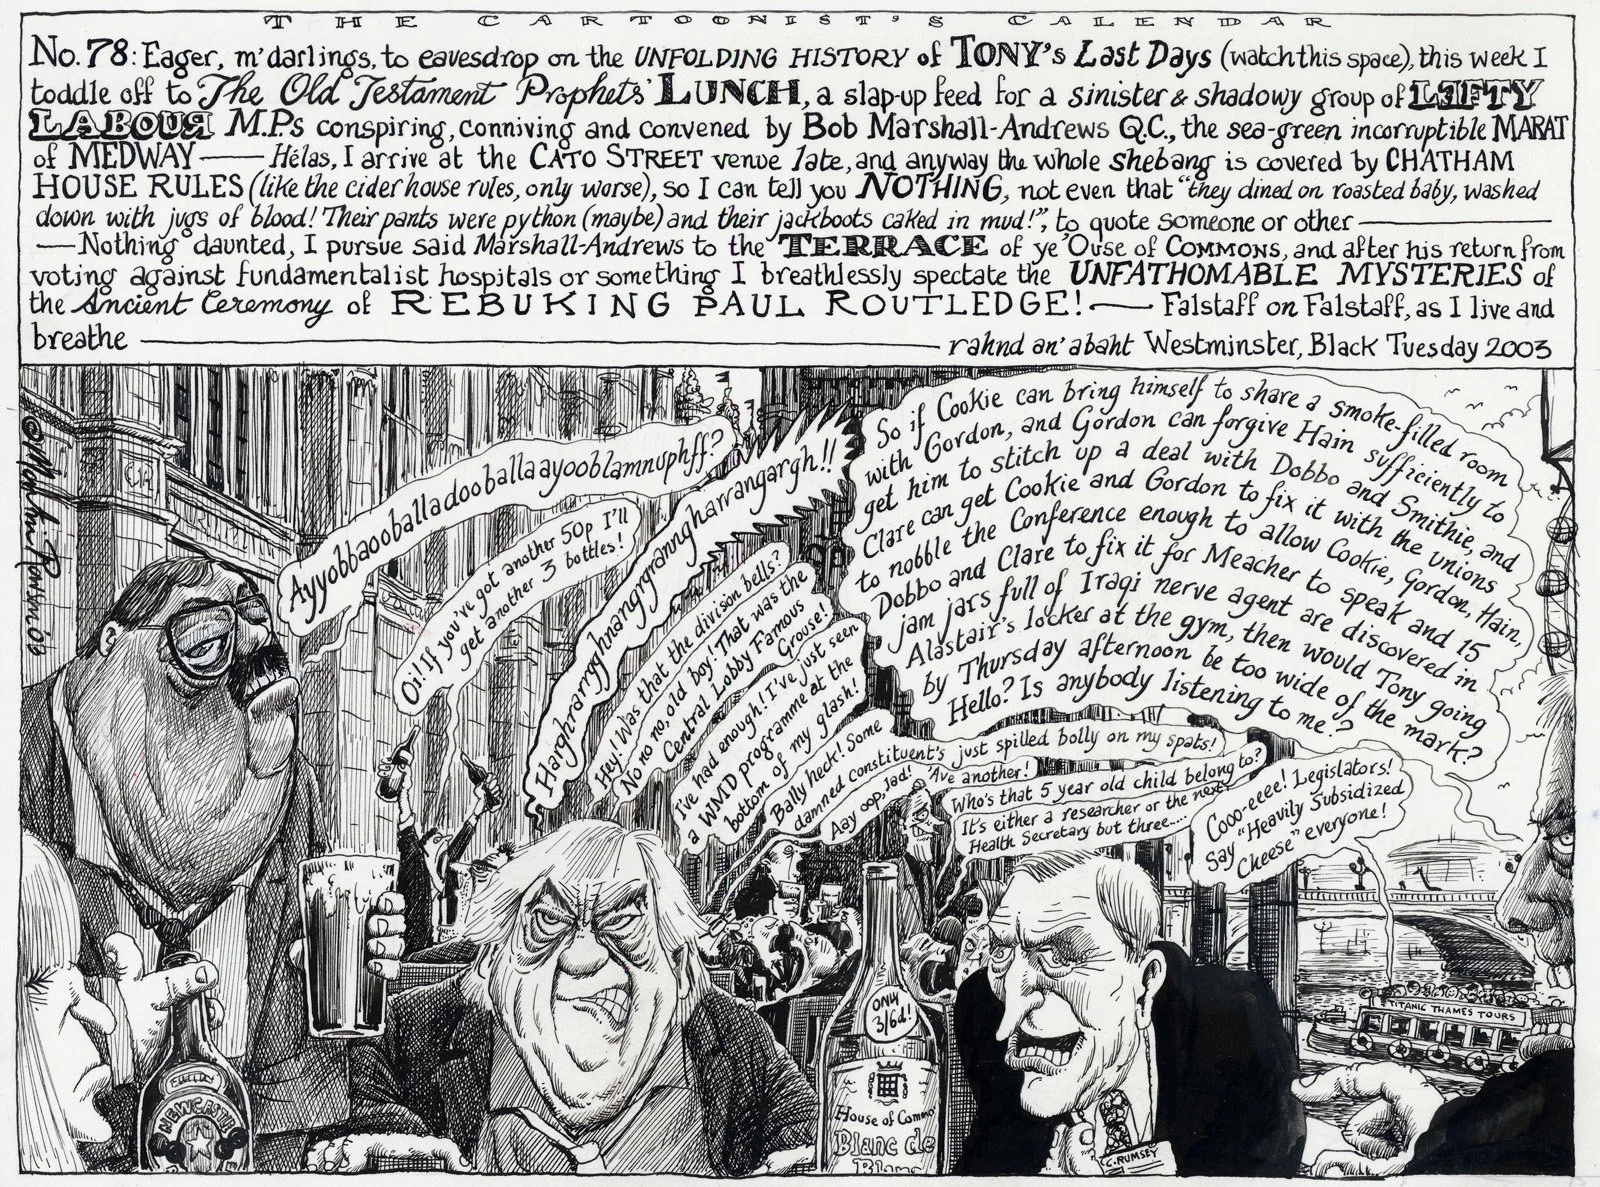 THE CARTOONIST'S CALENDAR
No. 78: Eager, m'darlings, to eavesdrop on the UNFOLDING HISTORY of TONY's Last Days (watch this space), this week I
toddle off to The Old Testament Prophets' LUNCH, a slap-up feed for a sinister & shadowy group of LEFTY
LABOUR M.Ps conspiring, conniving and convened by Bob Marshall-Andrews Q.C., the sea-green incorruptible MARAT
of MEDWAY — Hélas, I arrive at the CATO STREET venue late, and anyway the whole shebang is covered by CHATHAM
HOUSE RULES (like the cider house rules, only worse), so I can tell you NOTHING, not even that "they dined on roasted baby, washed
down with jugs of blood! Their pants were python (maybe) and their jackboots caked in mud!", to quote someone or other —
— Nothing daunted, I pursue said Marshall-Andrews to the TERRACE of ye 'Ouse of COMMONS, and after his return from
voting against fundamentalist hospitals or something I breathlessly spectate the UNFATHOMABLE MYSTERIES of
the Ancient Ceremony of REBUKING PAUL ROUTLEDGE! — Falstaff on Falstaff, as I live and
breathe — rahnd an' abaht Westminster, Black Tuesday 2003
© Martin Rowson '03
Ayyobbaooballadooballaayooblamnuphff?
Oi! If you've got another 50p I'll
get another 3 bottles!
Harghrarrgghnangrrgranngharrangargh!!
Hey! Was that the division bells?
No no no, old boy! That was the
Central Lobby Famous
Grouse!
I've had enough! I've just seen
a WMD programme at the
bottom of my glash!
Bally heck! Some
damned Constituent's just spilled bolly on my spats!
Aay oop, lad! 'Ave another!
Who's that 5 year old child belong to?
It's either a researcher or the next
Health Secretary but three....
Cooo-eeee! Legislators!
Say "Heavily Subsidized
Cheese" everyone!
So if Cookie can bring himself to share a smoke-filled room
with Gordon, and Gordon can forgive Hain sufficiently to
get him to stitch up a deal with Dobbo and Smithie, and
Clare can get Cookie and Gordon to fix it with the unions
to nobble the Conference enough to allow Cookie, Gordon, Hain,
Dobbo and Clare to fix it for Meacher to speak and 15
jam jars full of Iraqi nerve agent are discovered in
Alastair's locker at the gym, then would Tony going
by Thursday afternoon be too wide of the mark?
Hello? Is anybody listening to me?
TITANIC THAMES TOURS
ONLY
3/6d!
House of Commo
Blanc de
Blanc
NEWCASTLE
C. RUMSEY